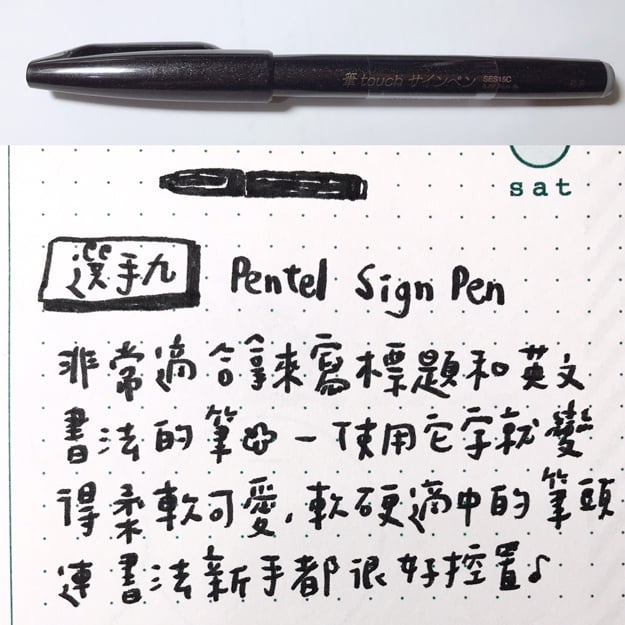 筆touch サインペン SES15C
sat
選手九 Pentel Sign Pen
非常適合拿來寫標題和英文
書法的筆 一使用它字就變
得柔軟可愛,軟硬適中的筆頭
連書法新手都很好控置♪